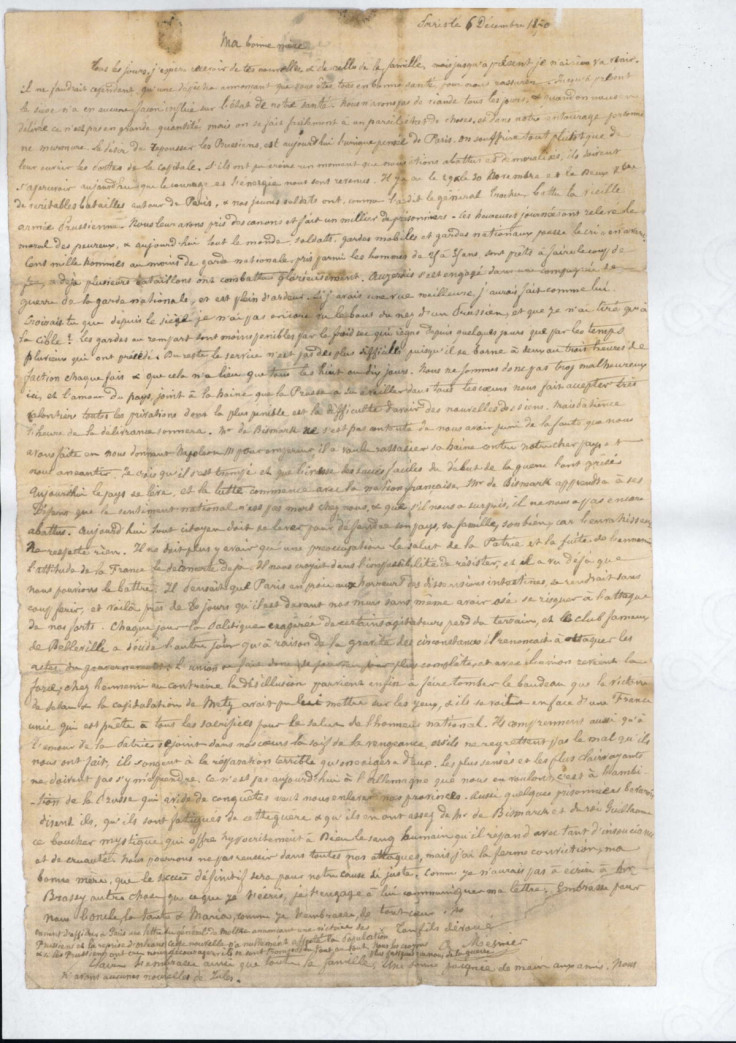 Paris le 6 Décembre 1870
Ma bonne mère
Tous les jours, j'espère recevoir de tes nouvelles & de celles de la famille, mais jusqu'à présent je n'ai rien vu venir.
il me faudrait cependant qu'une dépêche annonçant que vous êtes tous en bonne santé pour nous rassurer. Jusqu'à présent
le siège n'a en aucune façon influé sur l'état de notre santé. Nous n'avons pas de viande tous les jours, & quand on nous en
délivre ce n'est pas en grande quantité mais on se fait facilement à un pareil état de choses, et dans notre entourage personne
ne murmure. Le désir de repousser les Prussiens, est aujourd'hui l'unique pensée de Paris. On souffrira tout plutôt que de
leur ouvrir les portes de la capitale. S'ils ont pu croire un moment que nous étions abattus et démoralisés, ils doivent
s'apercevoir aujourd'hui que le courage et l'énergie nous sont revenus. Il y a eu le 29 & le 30 Novembre et le Deux Xbre
de véritables batailles autour de Paris, & nos jeunes soldats ont, comme l'a dit le général Trochu, battu la vieille
armée Prussienne. Nous leur avons pris des canons et fait un millier de prisonniers. Ces heureuses journées ont relevé le
moral des peureux, & aujourd'hui tout le monde, soldats, gardes mobiles et gardes nationaux pousse le cri: en avant.
Cent mille hommes au moins de garde nationale, pris parmi les hommes de 25 à 35 ans sont prêts à faire le coup de
feu, & déjà plusieurs bataillons ont combattu glorieusement. s'est engagé dans une compagnie de
guerre de la garde nationale, et est plein d'ardeur. Si j'avais une vue meilleure j'aurais fait comme lui.
Croirais tu que depuis le siège je n'ai pas encore vu le bout du nez d'un Prussien, et que je n'ai tiré qu'à
la cible? Les gardes au rempart sont moins pénibles par le froid sec qui règne depuis quelques jours que par les temps
pluvieux qui ont précédé. Du reste le service n'est pas des plus difficiles puisqu'il se borne à deux ou trois heures de
faction chaque fois & que cela n'a lieu que tous les huit ou dix jours. Nous ne sommes donc pas trop malheureux
ici, et l'amour du pays, joint à la haine que la Prusse a su éveiller dans tous les cœurs nous fait accepter très
volontiers toutes les privations dont la plus pénible est la difficulté d'avoir des nouvelles des siens. Mais patience
l'heure de la délivrance sonnera. Mr de Bismark ne s'est pas contenté de nous avoir puni de la faute que nous
avons faite en nous donnant Napoléon III pour empereur, il a voulu rassasier sa haine contre notre cher pays &
nous anéantir. Je crois qu'il s'est trompé et que l'ivresse des succès faciles du début de la guerre
Aujourd'hui le pays se lève, et la lutte commence avec la nation française. Mr de Bismarck apprendra à ses
dépens que le sentiment national n'est pas mort chez nous, & que s'il nous a surpris, il ne nous a pas encore
abattus. Aujourd'hui tout citoyen doit se lever pour défendre son pays, sa famille, son bien, car l'envahisseur
ne respecte rien. Il ne doit plus y avoir qu'une préoccupation le salut de la Patrie et la fuite de l'ennemi.
L'attitude de la France le déconcerte déjà. Il nous croyait dans l'impossibilité de résister, et il a vu déjà que
nous pouvions le battre. Il pensait que Paris en proie aux horreurs des discussions intestines, se rendrait sans
coup férir, et voilà près de 80 jours qu'il est devant nos murs sans même avoir osé se risquer à l'attaque
de nos forts. Chaque jour la politique exagérée de certains agitateurs perd du terrain, et le club fameux
de Belleville a décidé l'autre jour qu'à raison de la gravité des circonstances il renonçait à attaquer les
actes du gouvernement. L'union se fait donc de jour en jour plus complète, et avec l'union revient la
force, chez l'ennemi au contraire la désillusion parvient enfin à faire tomber le bandeau que la victoire
de Sedan & la capitulation de Metz avait pu leur mettre sur les yeux, & ils se voient en face d'une France
unie qui est prête à tous les sacrifices pour le salut de l'honneur national. Ils comprennent aussi qu'à
l'amour de la patrie se joint dans nos cœurs la soif de la vengeance, et s'ils ne regrettent pas le mal qu'ils
nous ont fait, ils songent à la réparation terrible qu'on exigera d'eux. Les plus sensés et les plus clairvoyants
ne doivent pas s'y méprendre. Ce n'est pas aujourd'hui à l'Allemagne que nous en voulons, c'est à l'ambi-
-tion de la Prusse qui avide de conquêtes veut nous enlever nos provinces. Aussi quelques prisonniers
disent ils, qu'ils sont fatigués de cette guerre & qu'ils en ont assez de Mr de Bismarck et du roi Guillaume
ce boucher mystique qui offre hypocritement à Dieu le sang humain qu'il répand avec tant d'insouciance
et de cruauté. Nous pouvons ne pas réussir dans toutes nos attaques, mais j'ai la ferme conviction, ma
bonne mère, que le succès définitif sera pour notre cause si juste. Comme je n'aurais pas à écrire à Mr
Brassey autre chose que ce que je t'écris, je t'engage à lui communiquer ma lettre. Embrasse pour
nous l'oncle, la tante & Maria, comme je t'embrasse, de tout cœur
Ton fils dévoué
Prussiens et la reprise d'Orléans. Cette nouvelle n'a nullement affecté la population
t'embrasse ainsi que toute la famille. Une bonne poignée de main aux amis. Nous
n'avons aucunes nouvelles de Jules.